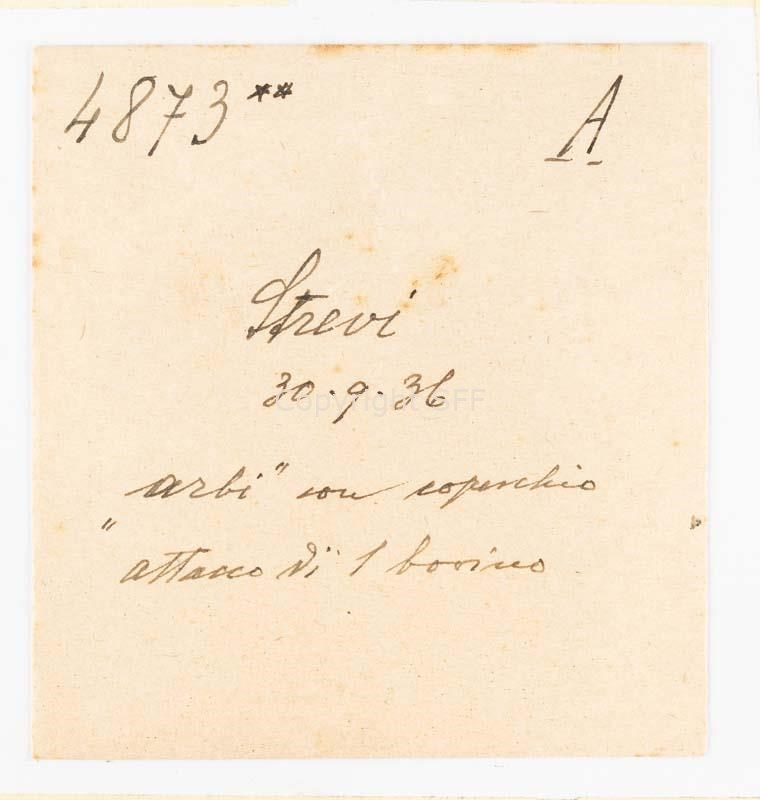 4873** A
Strevi
30.9.36
Copyright SFF
arbi" con coperchio
"
attacco di 1 bovino